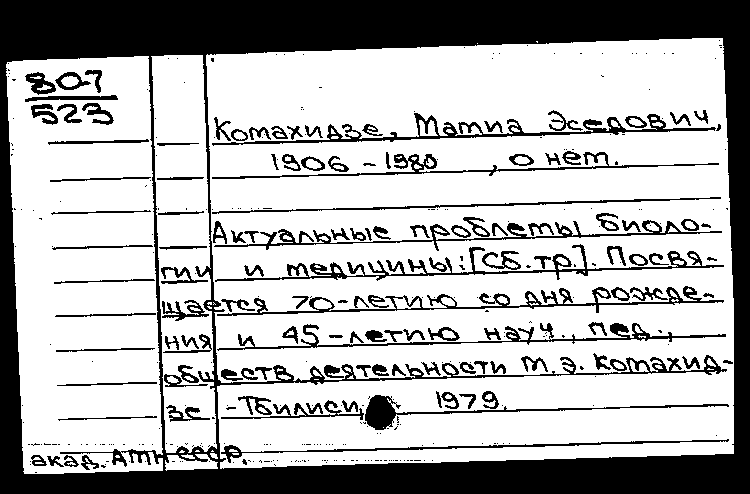 807
523
Комахидзе, Мамиа Эседович,
1906 - 1980 , о нём.
Актуальные проблемы биоло-
гии и медицины: [Сб. тр.]. Посвя-
щается 70-летию со дня рожде-
ния и 45-летию науч., пед.,
обществ. деятельности М. Э. Комахид-
зе - Тбилиси, 1979.
акад. АМН СССР.